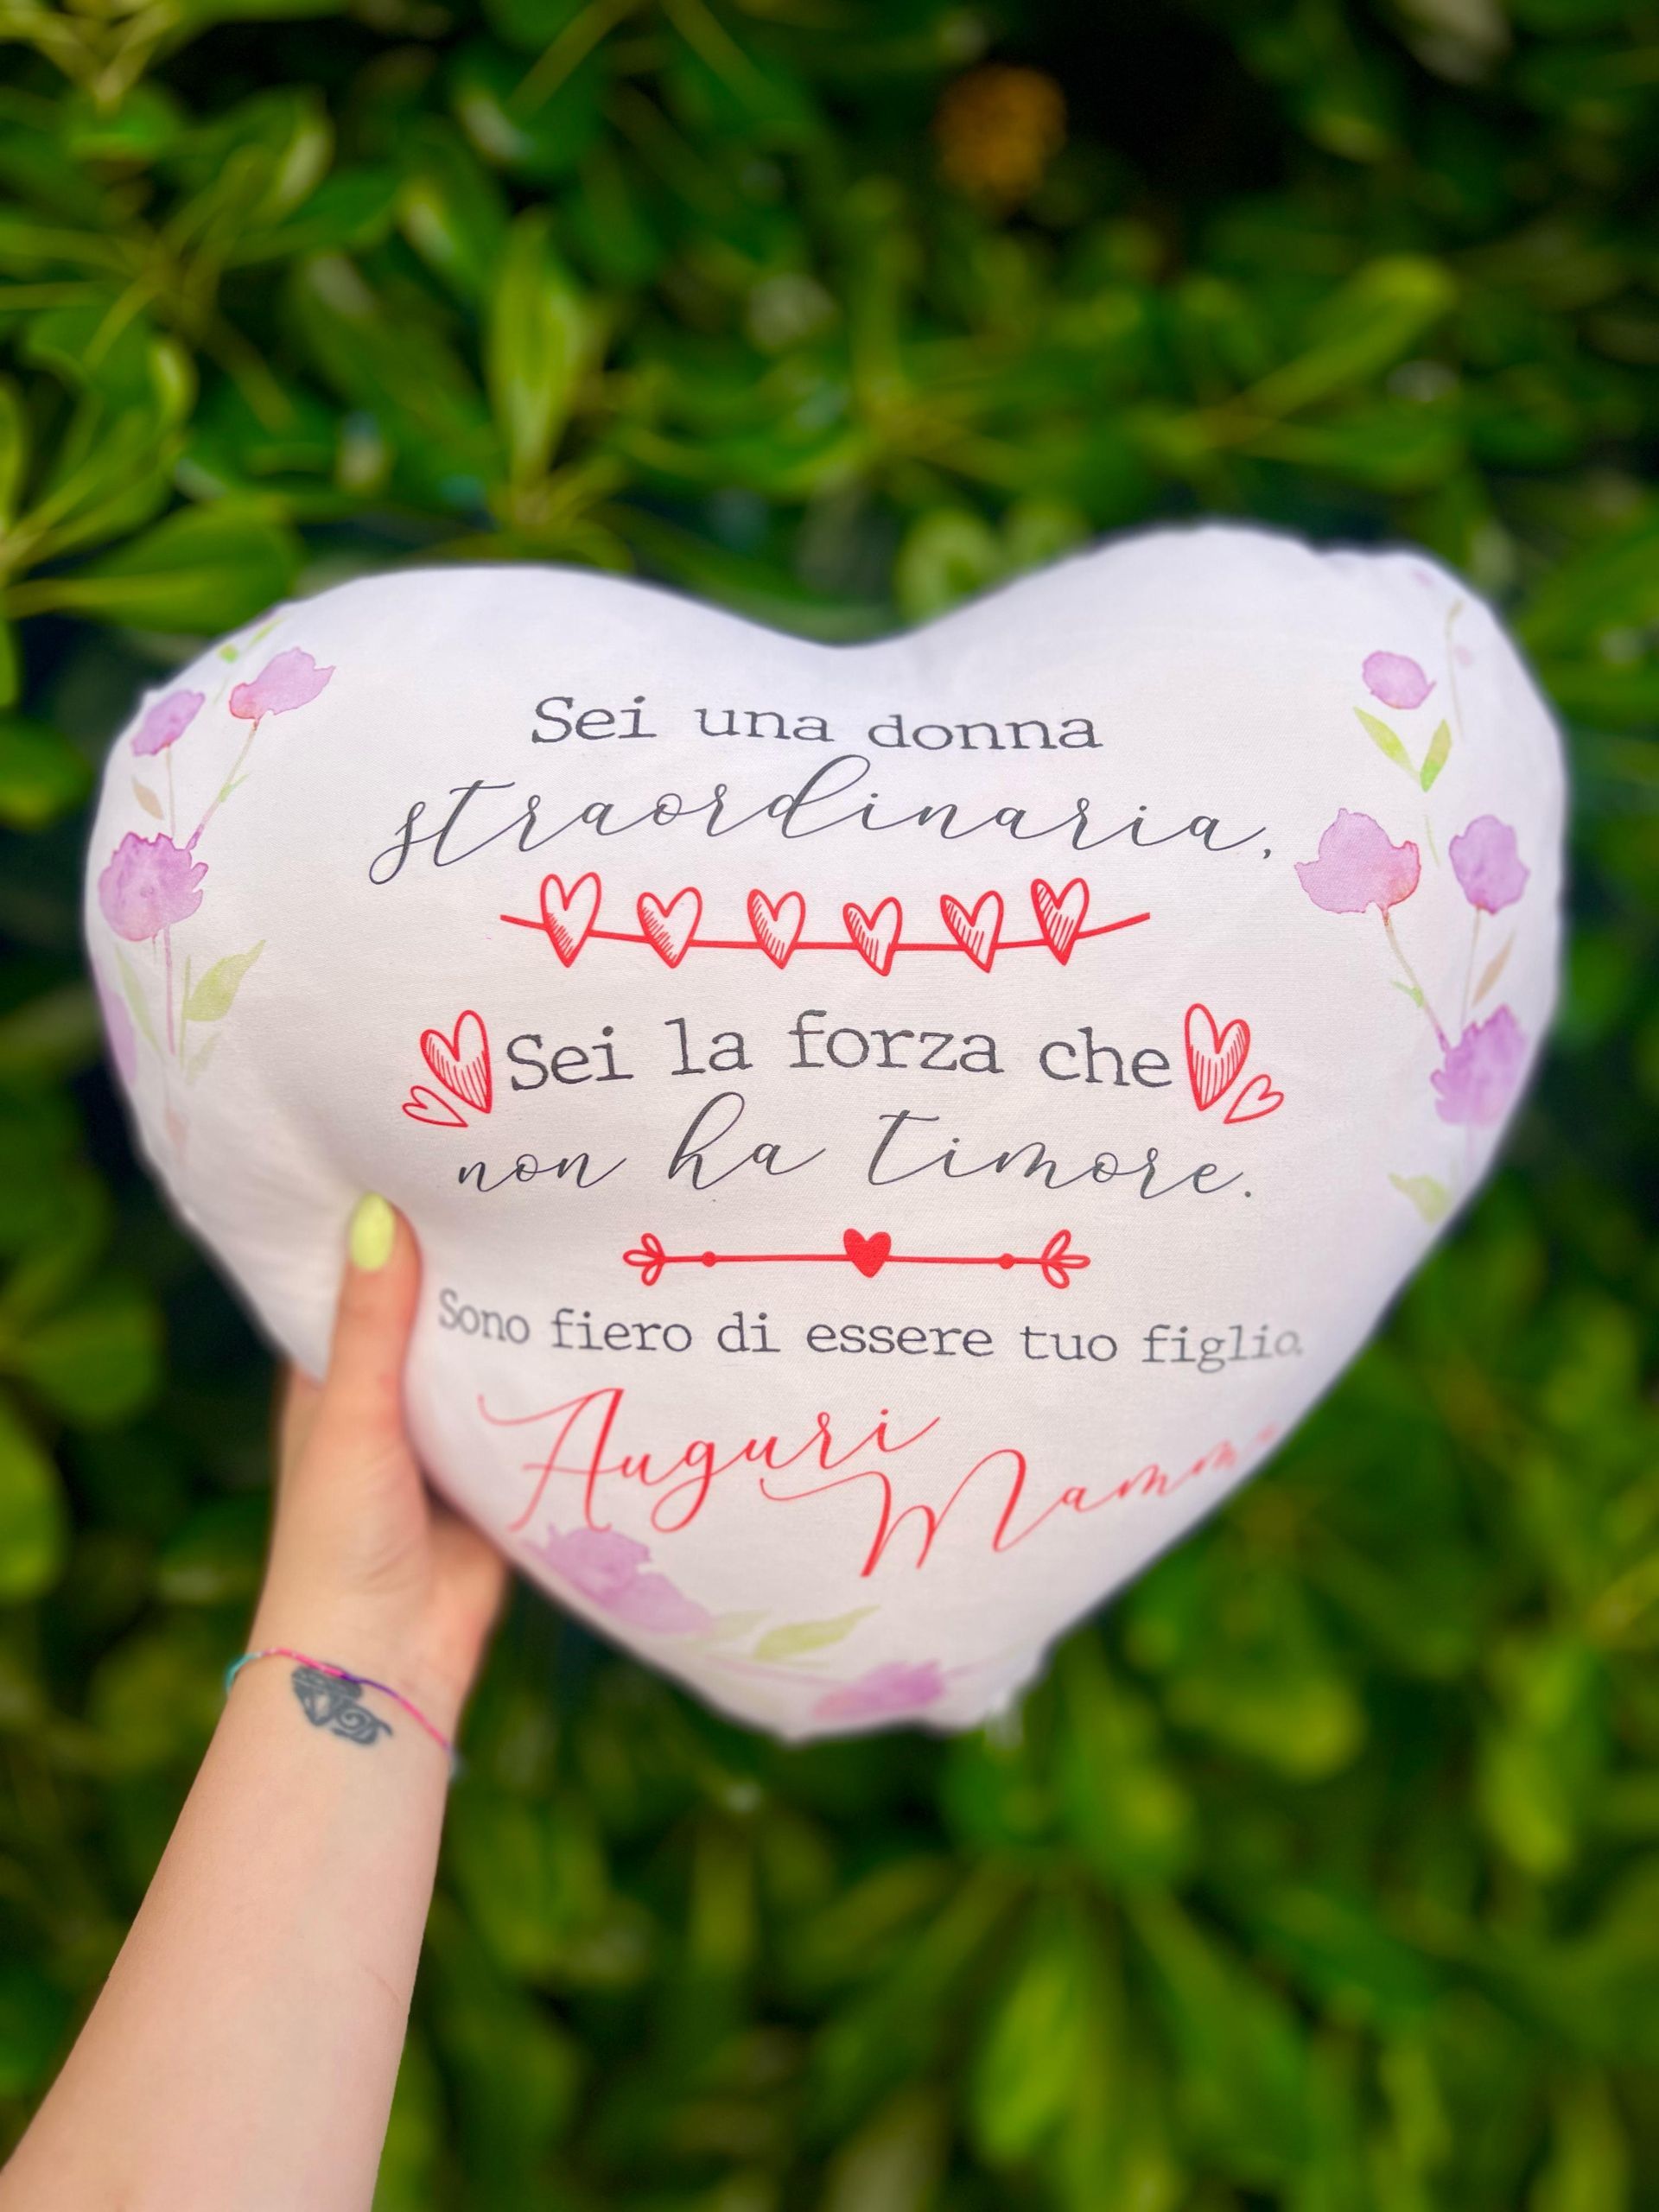 Sei una donna
straordinaria,
Sei la forza che
non ha timore.
Sono fiero di essere tuo figlio
Auguri
Mamma